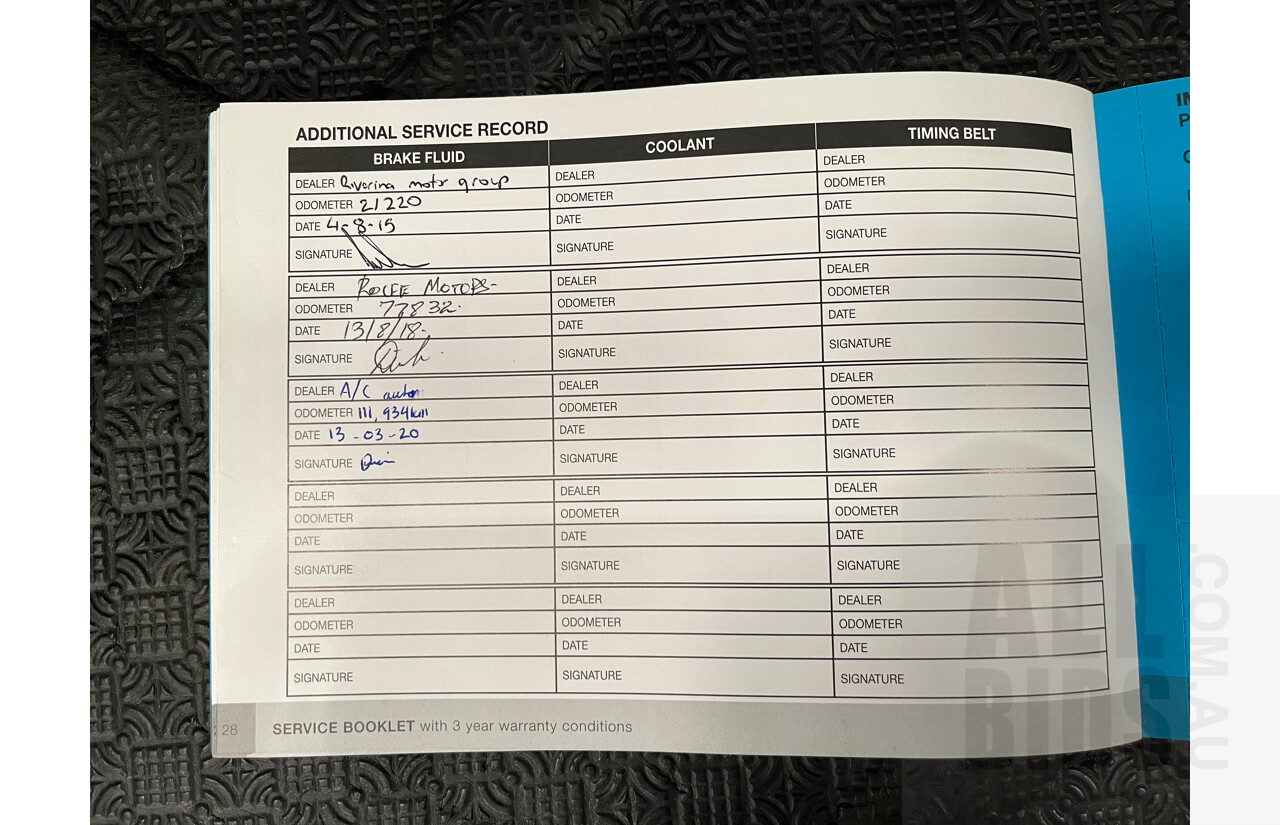 ADDITIONAL SERVICE RECORD
BRAKE FLUID COOLANT TIMING BELT
DEALER Riverina motor group DEALER DEALER
ODOMETER 21220 ODOMETER ODOMETER
DATE 4-8-15 DATE DATE
SIGNATURE SIGNATURE SIGNATURE
DEALER ROLFE MOTORS- DEALER DEALER
ODOMETER 77832. ODOMETER ODOMETER
DATE 13/8/18- DATE DATE
SIGNATURE SIGNATURE SIGNATURE
DEALER A/C DEALER DEALER
ODOMETER 111,934km ODOMETER ODOMETER
DATE 13-03-20 DATE DATE
SIGNATURE SIGNATURE SIGNATURE
DEALER DEALER DEALER
ODOMETER ODOMETER ODOMETER
DATE DATE DATE
SIGNATURE SIGNATURE SIGNATURE
DEALER DEALER DEALER
ODOMETER ODOMETER ODOMETER
DATE DATE DATE
SIGNATURE SIGNATURE SIGNATURE
28 SERVICE BOOKLET with 3 year warranty conditions
ALL
BIDS
.COM.AU